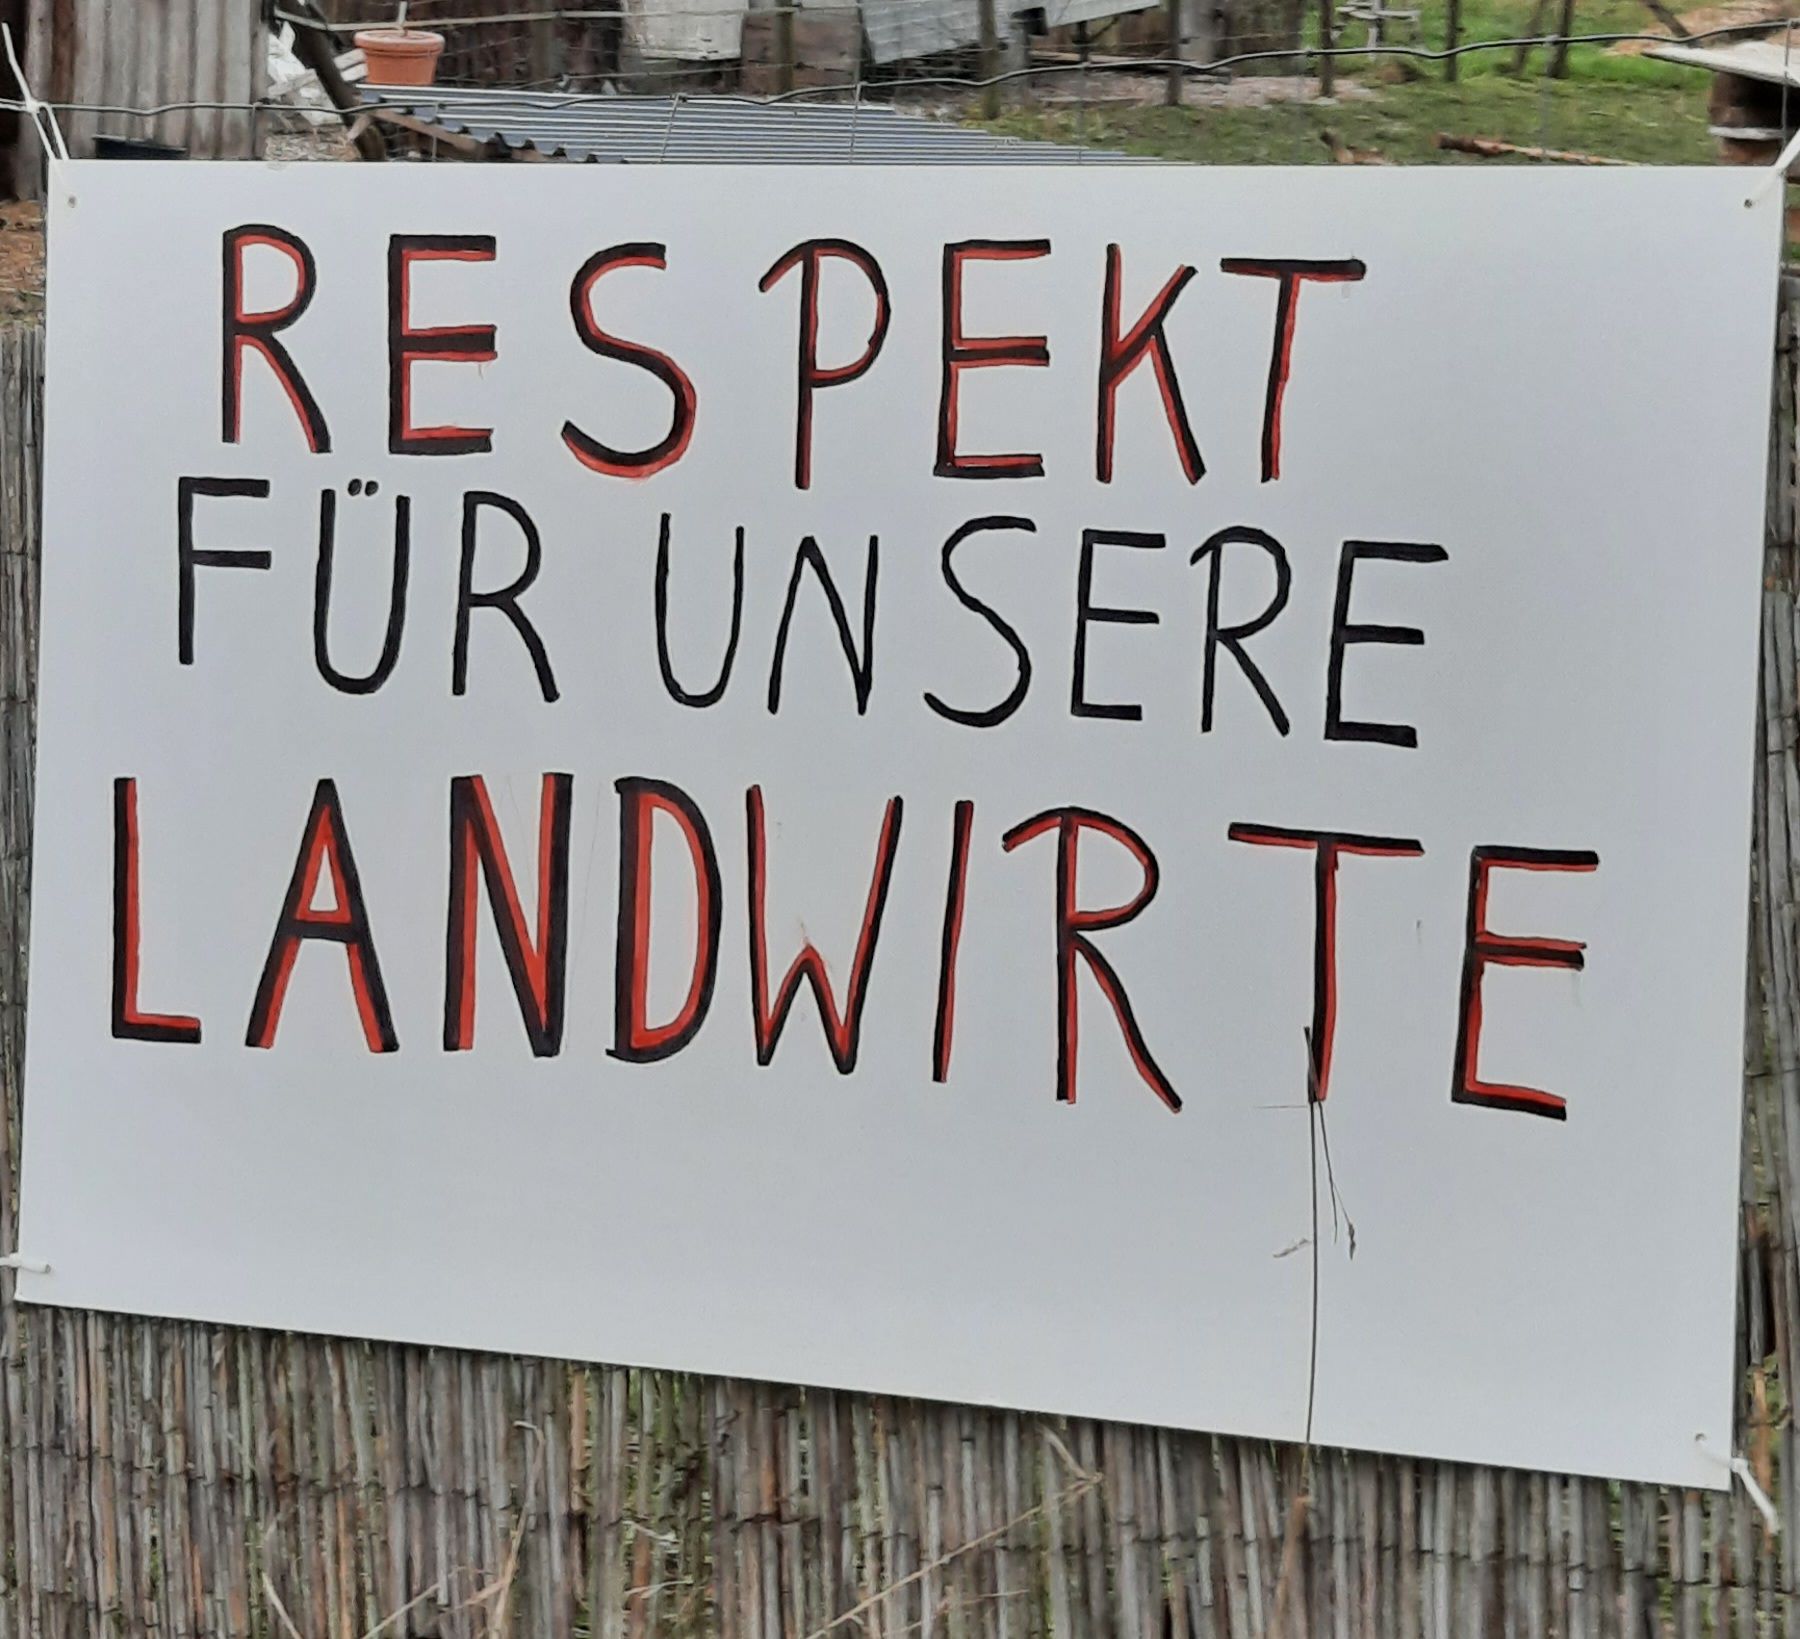 RESPEKT
FÜR UNSERE
LANDWIRTE